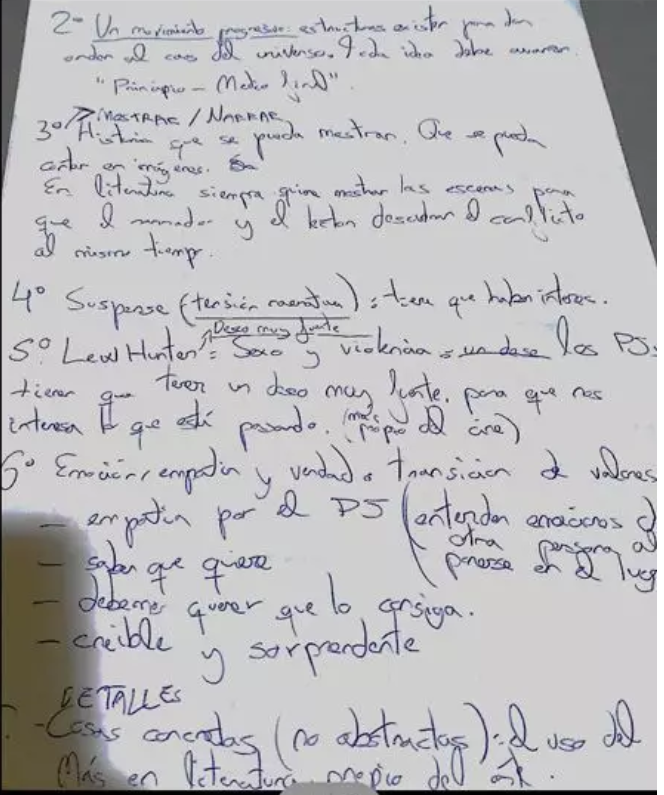 2º Un movimiento progresivo: estructuras existen para dar
orden al caos del universo. Toda idea debe
"Principio - Medio final".
MOSTRAR / NARRAR
3º Historia que se pueda mostrar. Que se pueda
contar en imágenes.
En literatura siempre mostrar las escenas para
que el narrador y el lector descubran el conflicto
al mismo tiempo.
4º Suspense (tensión narrativa): tiene que haber interes.
Deseo muy fuerte
5º. Lew Hunter = Sexo y violencia = un dese los PJs
tienen que tener un deseo muy fuerte, para que nos
interesa lo que está pasando. (más propio del cine)
6º Emoción, empatía y verdad. transición de valores
- empatía por el PJ (entender emociones d
otra persona al
ponerse en el lug
- saber que quiere
- debemos querer que lo consiga.
- creible y sorprendente
DETALLES
- Cosas concretas (no abstractas): el uso del
Más en literatura, del